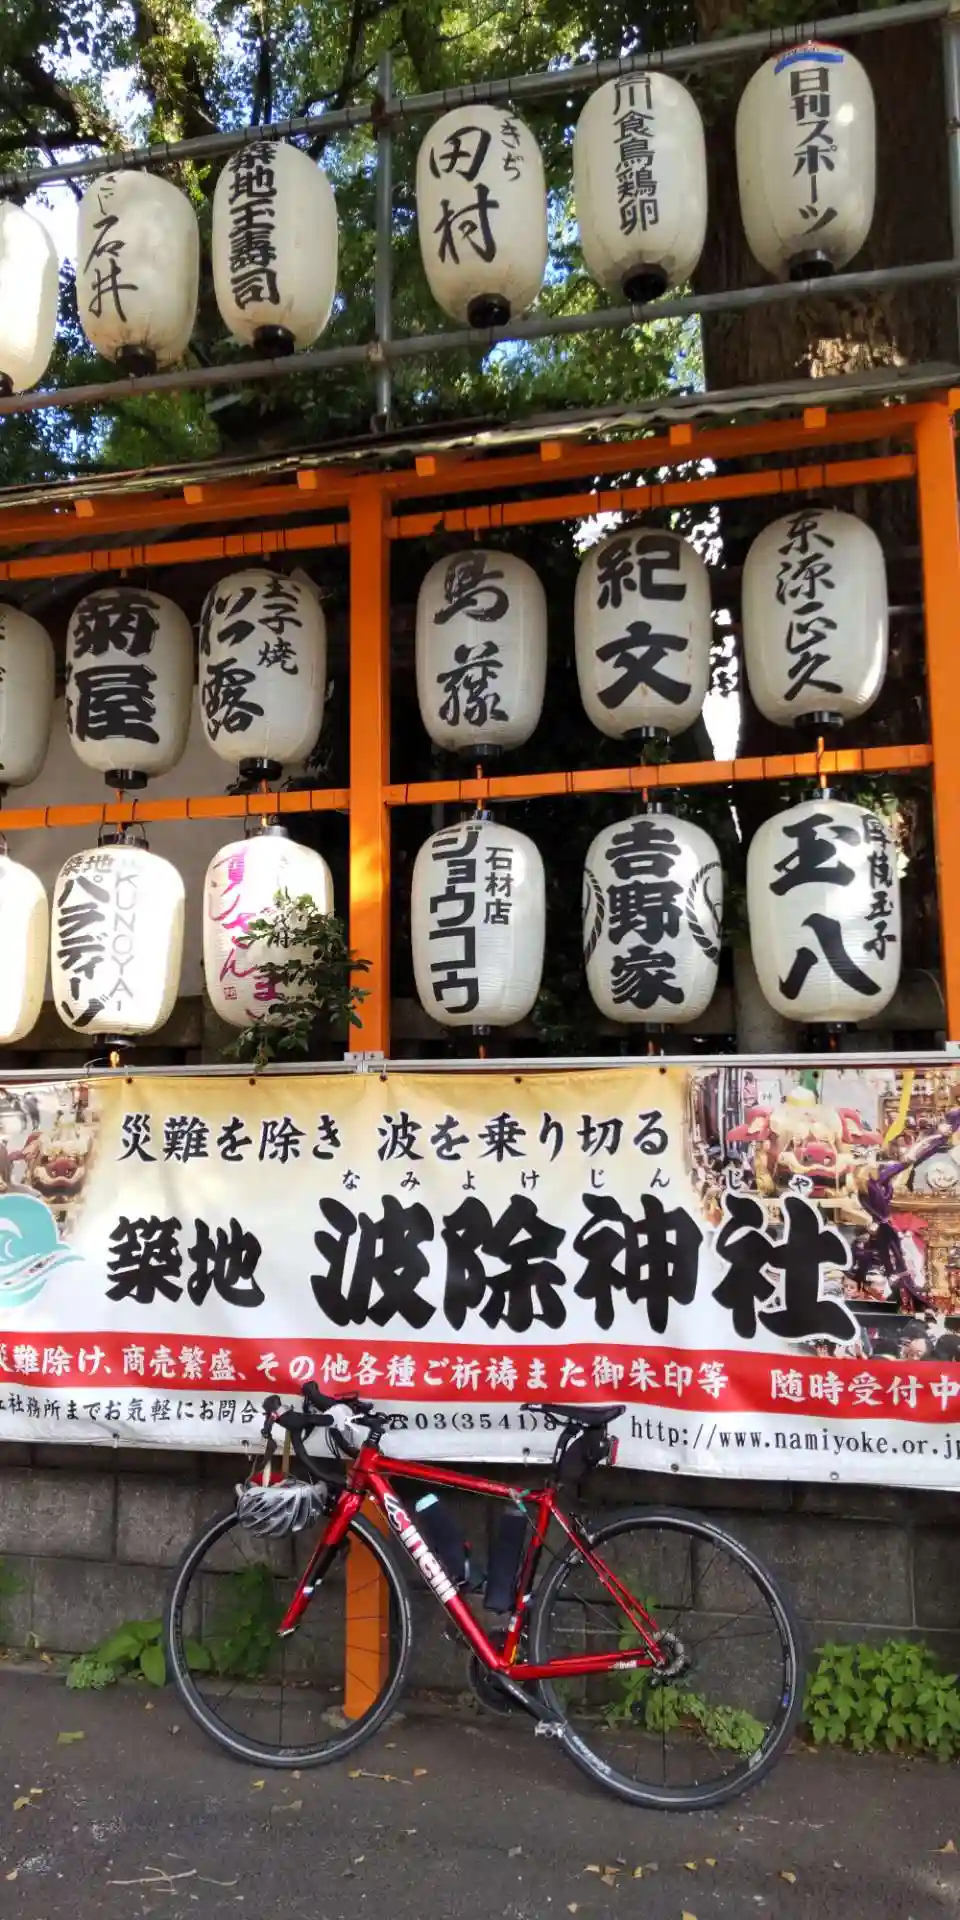 日刊スポーツ
川食鳥鶏卵
きぢ
田村
築地玉寿司
石井
東源正久
紀文
玉子焼
松露
菊屋
厚焼玉子
玉八
吉野家
石材店
ジョウコウ
すしざんまい
築地
パラディーゾ
KUNOYA
災難を除き 波を乗り切る
なみよけじんじゃ
築地 波除神社
災難除け、商売繁盛、その他各種ご祈祷また御朱印等 随時受付中
社務所までお気軽にお問合
☎03(3541)8
http://www.namiyoke.or.jp
cinelli